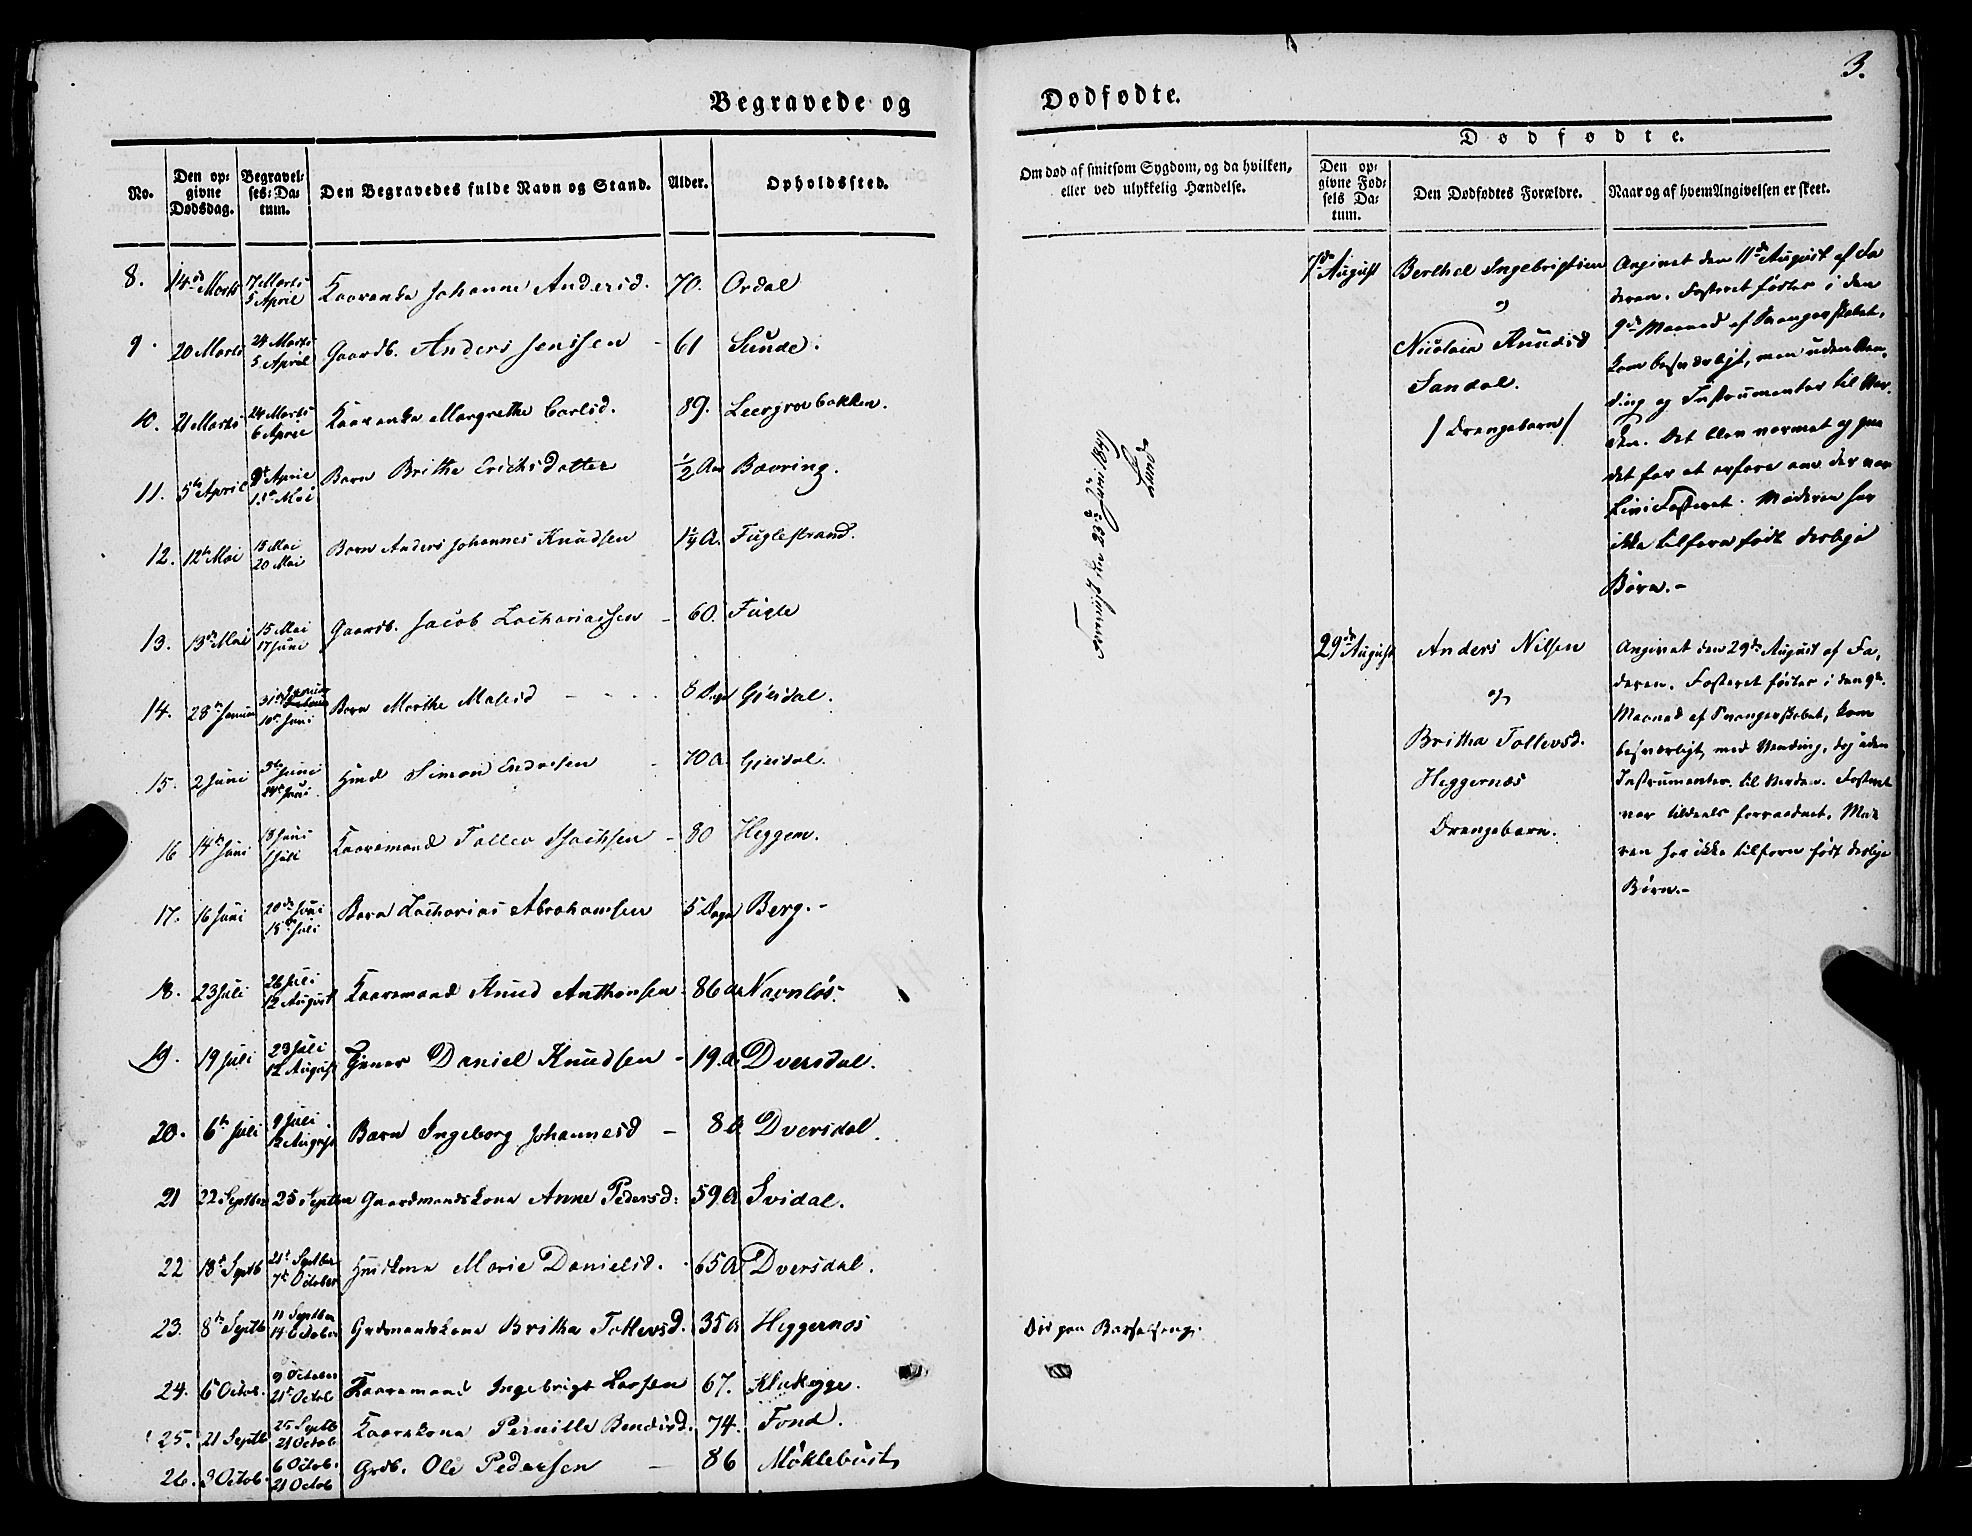 3.
Begravede og Dødfødte.
No.
Den opgivne Dødsdag.
Begravelses-Datum.
Den Begravedes fulde Navn og Stand.
Alder.
Opholdssted.
Om død af smitsom Sygdom, og da hvilken, eller ved ulykkelig Hændelse.
Dødfødte.
Den opgivne Fødsels Datum.
Den Dødfødtes Forældre.
Naar og af hvem Angivelsen er skeet.
8. 14de Marts 17 Marts 5 April Kaarenke Johanne Andersd. 70. Ordal
9. 20 Marts 24 Marts 5 April Gaardb. Anders Jensen 61 Sunde.
10. 21 Marts 24 Marts 6 April Kaarenke Margrethe Carlsd. 89. Leergrovbakken.
11. 5te April Barn Brithe Erichsdatter 1/2 Aar Bauring.
12. 12te Mai 15 Mai 20 Mai Barn Anders Johannes Knudsen 1 1/4 A. Fuglestrand.
13. 13de Mai 15 Mai 17 Juni Gaardb. Jacob Zachariassen 60. Fugle
14. 28de Januar 10de Juni Barn Marthe Madsd 8 Dage Gjesdal.
15. 2 Juni 5te Juni 24de Juni Huusm. Simon Endresen 70 A Gjesdal.
16 14de Juni 18 Juni 1 Juli Kaaremand Tollev 80 Heggem.
17. 16 Juni 20de Juni 15de Juli Barn Zacharias Abrahamsen 5 Dage Berg.-
18. 23 Juli 26 Juli 12 August Kaaremand Knud Anthonsen 86 A Navnløs.
19. 19 Juli 23 Juli 12 August Tjener Daniel Knudsen - 19. A. Dversdal.
20. 6te Juli 9 Juli 12 August Barn Ingeborg Johannesd - 8 A Dversdal.
21 22 Septbr 25 Septbr Gaardmandskone Anne Pedersd: 59. A Svidal.
22 18de Septb 21de Septbr 7de October Huuskone Marie Danielsd. 65 A Dversdal.
23. 8de Septb 11 Septbr 14 October Grdmandskone Britha Tollevsd. 35 A Heggernæs
24. 6 Octob. 9 October 21de Octob Kaaremand Ingebrigt Larsen 67. Klukegge.
25. 21 Septb 25 Septb 21 Octob Kaarekone Pernille Bendixd. 74. Fond.
26. 3 Octob. 6 Octob. 21 Octob Grdb. Ole Pedersen 86 Møklebust
den 23de Juni 1841
Lund
Død paa Barselseng.
7de August
Berthel Ingebrigtsen
og
Nicolaia Knudsd
Sandal.
/Drengebarn/
Angivet den 11te August af Fa
deren. Fosteret fødtes i den
9de Maaned af Svangerskabet,
kom besværligt, men uden Ven,
ding og Instrumenter til Ver,
den. Det blev varmet og
det for at erfare om der var
Liv i Fosteret. Moderen har
ikke tilforn født deslige
Børn.-
29de August
Anders Nilsen
og
Britha Tollevsd.
Heggernæs
Drengebarn.
Angivet den 29de August af Fa,
deren. Fosteret fødtes i den 9de
Maaned af Svangerskabet, kom
besværligt, med Vending, dog uden
Instrumenter til Verden. Fosteret
var tildeels forraadnet. Mod
ren har ikke tilforn født deslige
Børn.-